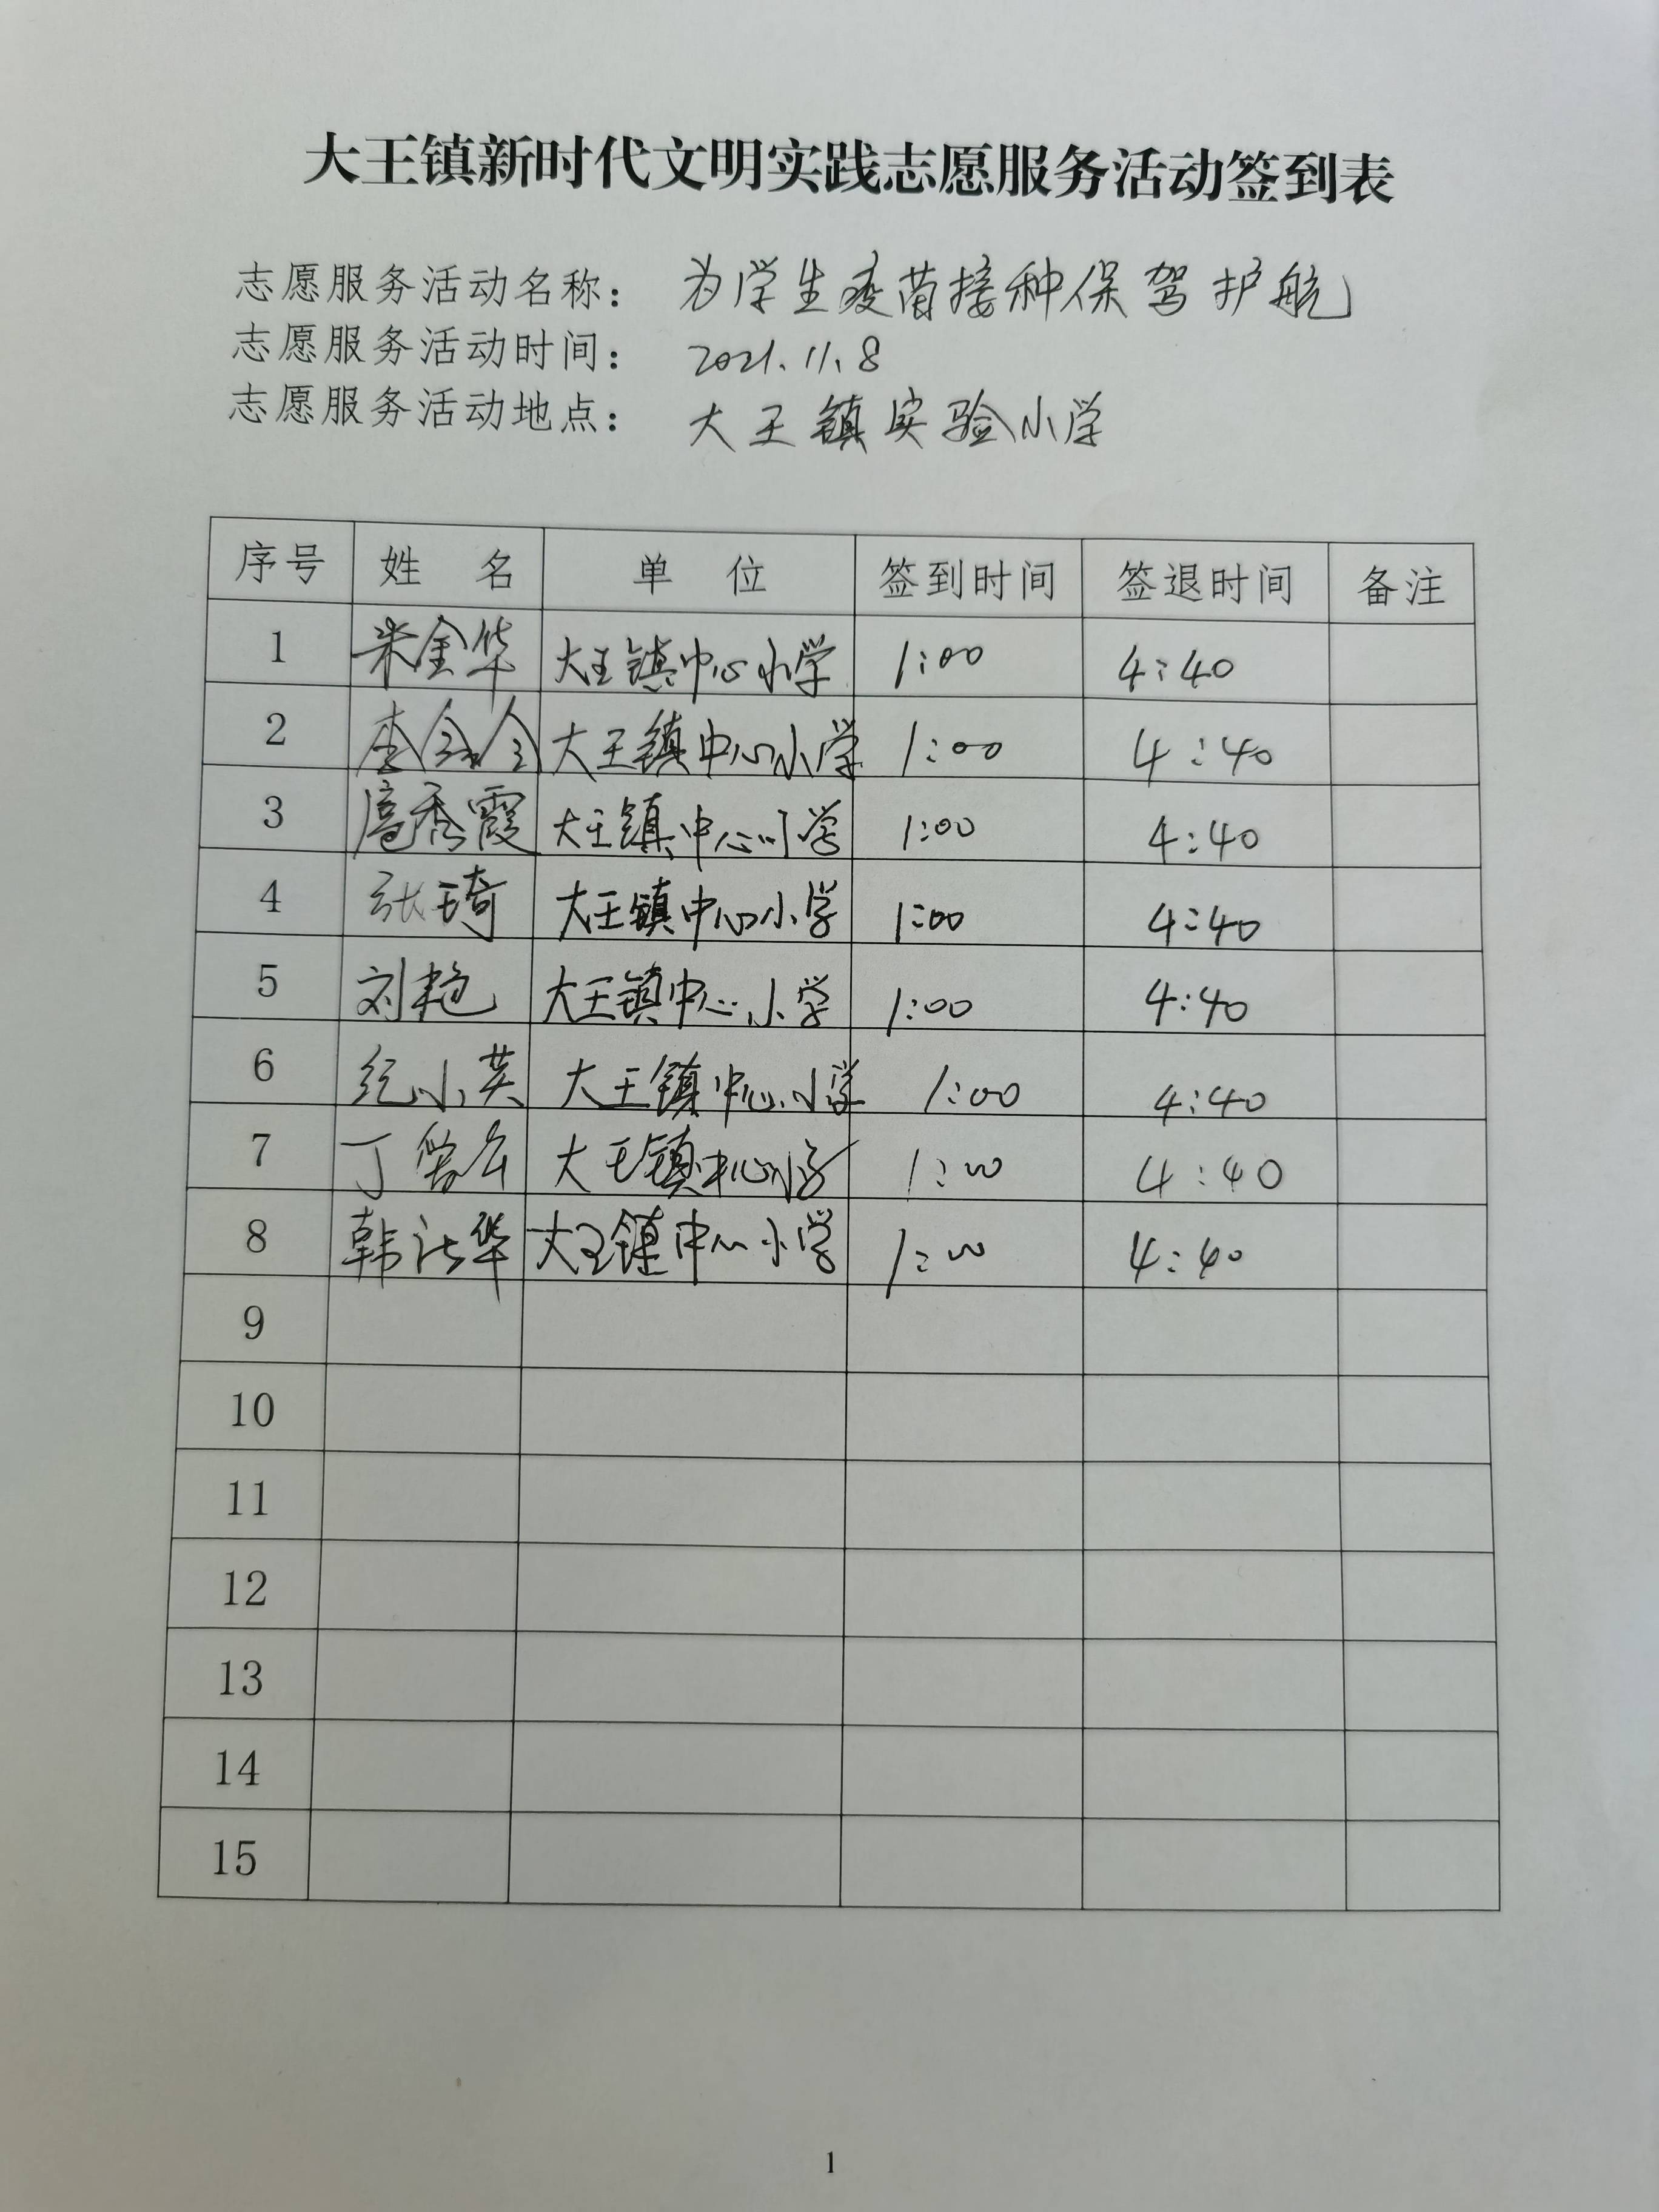 大王镇新时代文明实践志愿服务活动签到表
志愿服务活动名称： 为学生疫苗接种保驾护航
志愿服务活动时间： 2021.11.8
志愿服务活动地点： 大王镇实验小学
序号 姓 名 单 位 签到时间 签退时间 备注
1 朱金华 大王镇中心小学 1:00 4:40
2 李 大王镇中心小学 1:00 4:40
3 扈秀霞 大王镇中心小学 1:00 4:40
4 张琦 大王镇中心小学 1:00 4:40
5 刘艳 大王镇中心小学 1:00 4:40
6 纪小英 大王镇中心小学 1:00 4:40
7 丁 大王镇中心小学 1:00 4:40
8 韩 华 大王镇中心小学 1:00 4:40
9
10
11
12
13
14
15
1